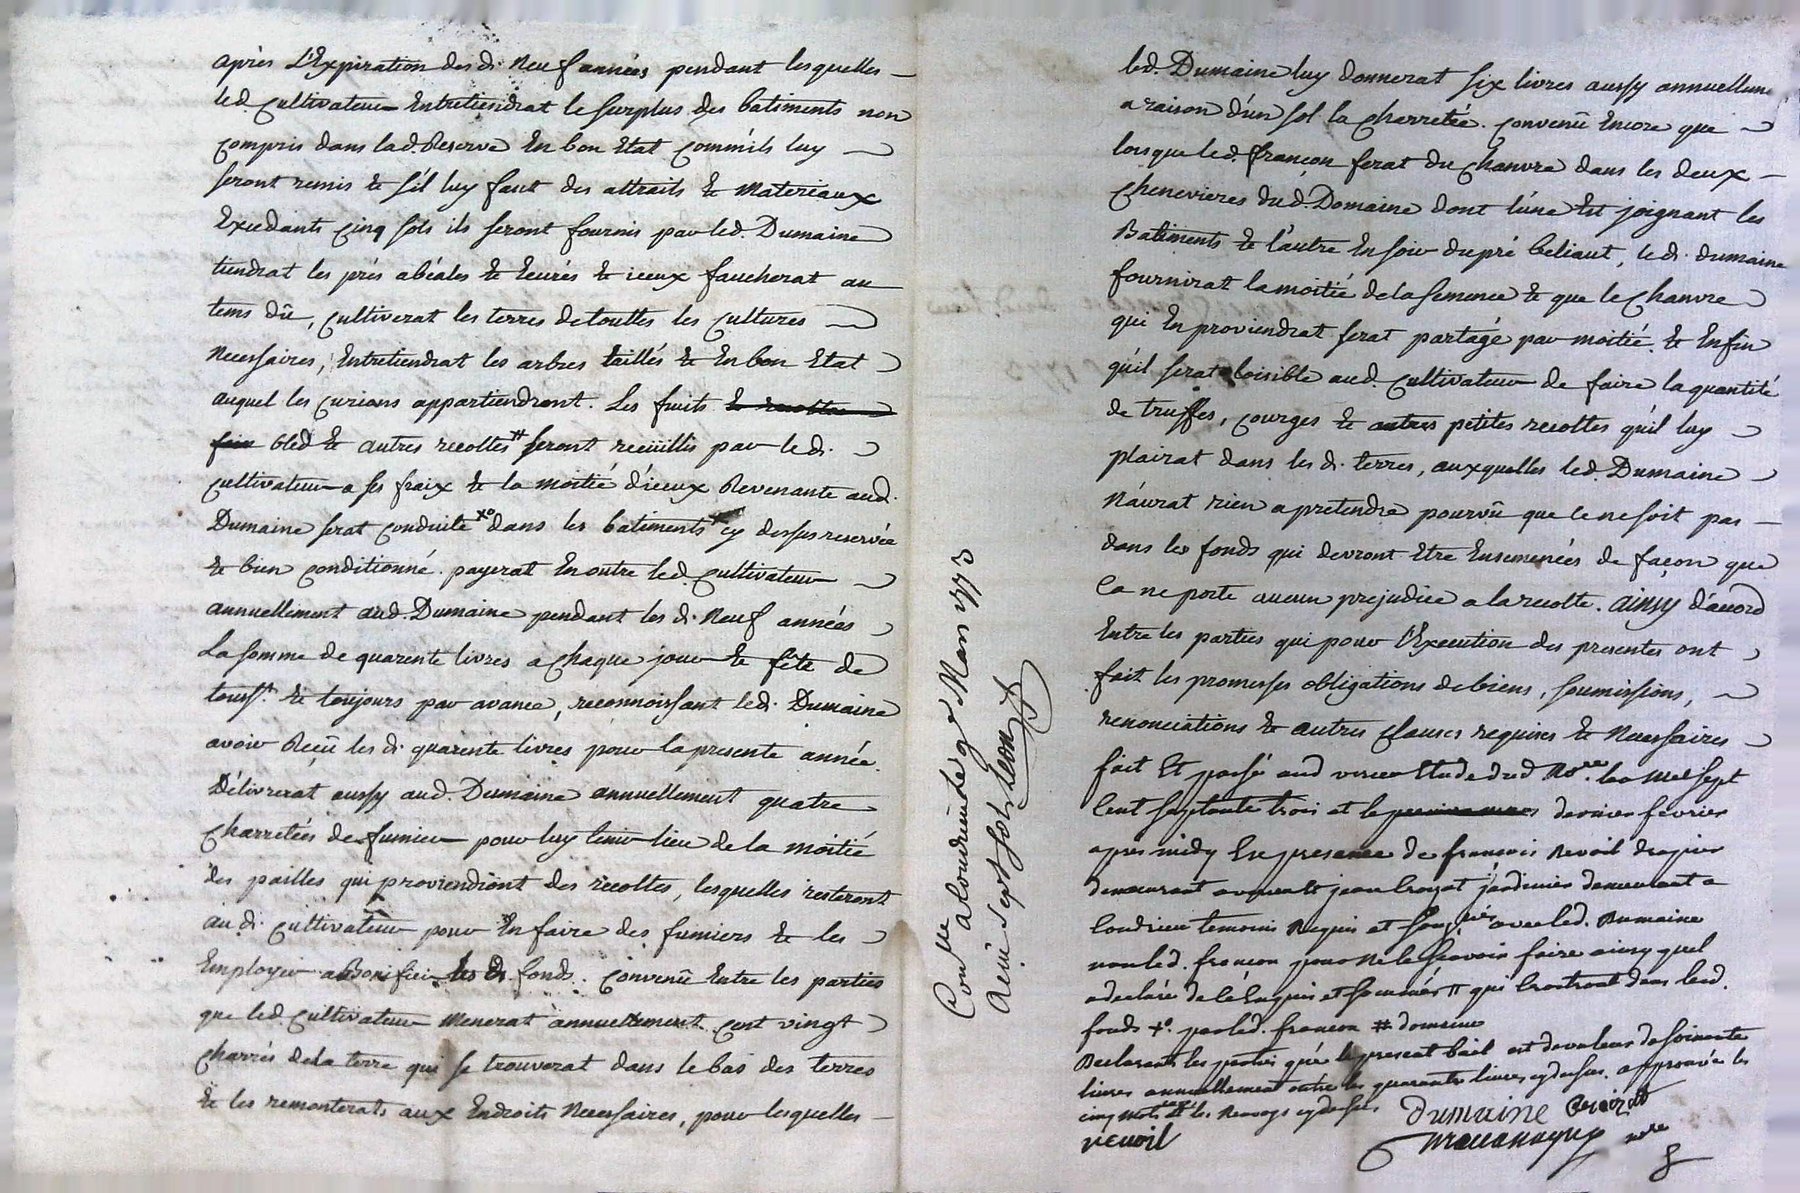 après l'Expiration desd. Neuf années pendant lesquelles
led. cultivateur Entretiendrat le surplus des batiments non
compris dans lad. Reserve En bon Etat comm'ils luy
seront remis & s'il luy faut des attraits & materiaux
Exedants cinq sols ils seront fournis par led. Dumaine
tiendrat les prés abéalés & Eurés & iceux faucherat au
tems dû, cultiverat les terres de touttes les cultures
Necessaires, Entretiendrat les arbres taillés & En bon Etat
auquel les curions appartiendront. Les fruits & recoltes
foin bled & autres recoltes # seront recüillis par led.
cultivateur a ses fraix & la moitié d'iceux Revenante aud.
Dumaine serat conduite x° dans les batiments cy dessus reservée
& bien conditionné. payerat En outre led. cultivateur
annuellement aud. Dumaine pendant lesd. Neuf années
La somme de quarente livres a chaque jour & fête de
touss.t & toujours par avance, reconnoissant led. Dumaine
avoir Reçû lesd. quarente livres pour la presente année.
Délivrerat aussy aud. Dumaine annuellement quatre
charretées de fumier pour luy tenir lieu de la moitié
des pailles qui proviendront des récoltes, lesquelles resteront
aud. cultivateur pour En faire des fumiers & les
Employer a Bonifier lesd. fonds. Convenû Entre les parties
que led. cultivateur Menerat annuellement cent vingt
charrés de la terre qui se trouverat dans le bas des terres
& les remonterats aux Endroits Necessaires, pour lesquelles
Con.lle a Condrieu le 9 Mars 1773
Reçu sept sols
led. Dumaine luy donnerat six livres aussy annuellem
a raison d'un sol la charretée. convenû Encore que
lorsque led. françon ferat du chanvre dans les deux
chenevieres dud. Domaine dont l'une Est joignant les
Batiments & l'autre En soir du pré beliaut, led. dumaine
fournirat la moitié de la semence & que le chanvre
qui En proviendrat serat partagé par moitié. & Enfin
qu'il serat loisible aud. cultivateur de faire la quantité
de truffes, courges & autres petites recoltes qu'il luy
plairat dans lesd. terres, auxquelles led. Dumaine
N'aurat rien a pretendre pourvû que ce ne soit pas
dans les fonds qui devront Etre Ensemencées de façon que
ca ne porte aucun prejudice a la recolte. ainsy d'acord
Entre les parties qui pour l'Execution des presentes ont
fait les promesses obligations de biens, soumissions,
renonciations & autres clauses requises & Necessaires
fait Et passé aud. Etude dud. No.re lan Mil sept
Cent septante trois et le dernier fevrier
apres midy En presence de francois Revoil drapier
demeurant et jean Crozat jardinier demeurant a
Condrieu temoins Requis et soussignés avec led. Dumaine
non led. francon pour Ne le sçavoir faire ainsy quil
a declaré de ce Enquis et sommé π qui Croitront dans lesd.
fonds x°. par led. francon # domaine
Declarants les parties que le present bail est de valeur de soixante
livres annuellement outre les quarante livres cy dessus. approuvée les
cinq mots et les Renvoys cy dessus
Dumaine Crozat
revoil